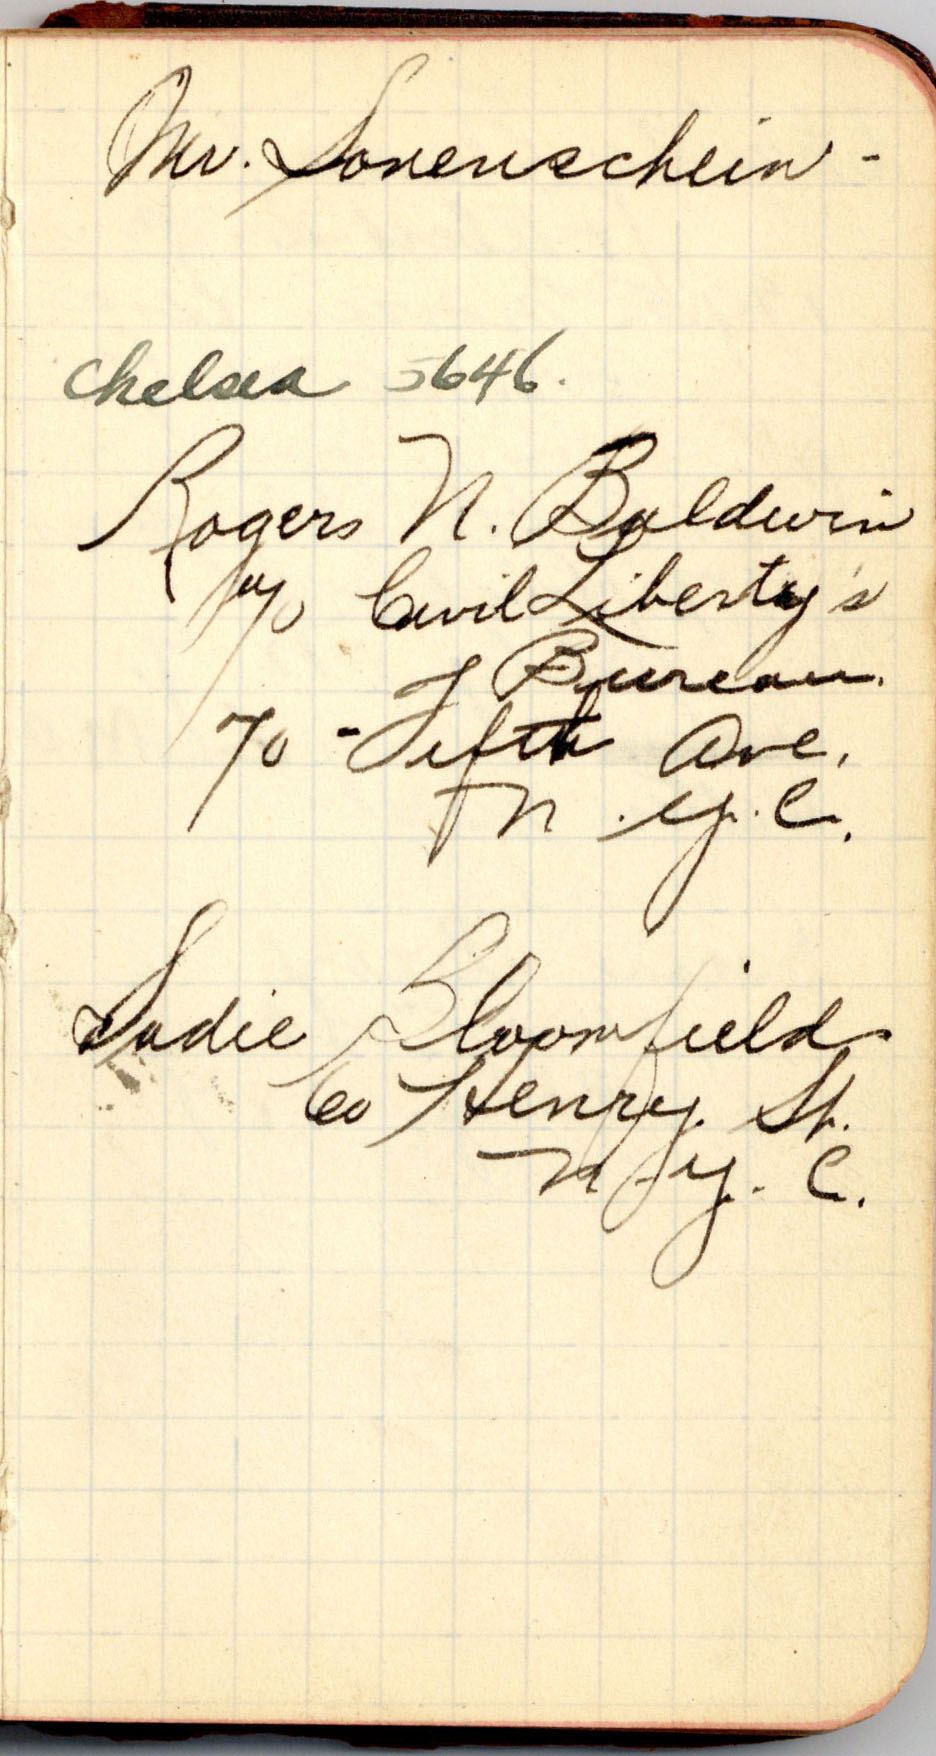 Mr. Sonenschein -
Chelsea 5646.
Rogers N. Baldwin
c/o Civil Liberty's
Bureau.
70 - Fifth Ave.
N.Y.C.
Sadie Bloomfield
Henry St.
N.Y.C.